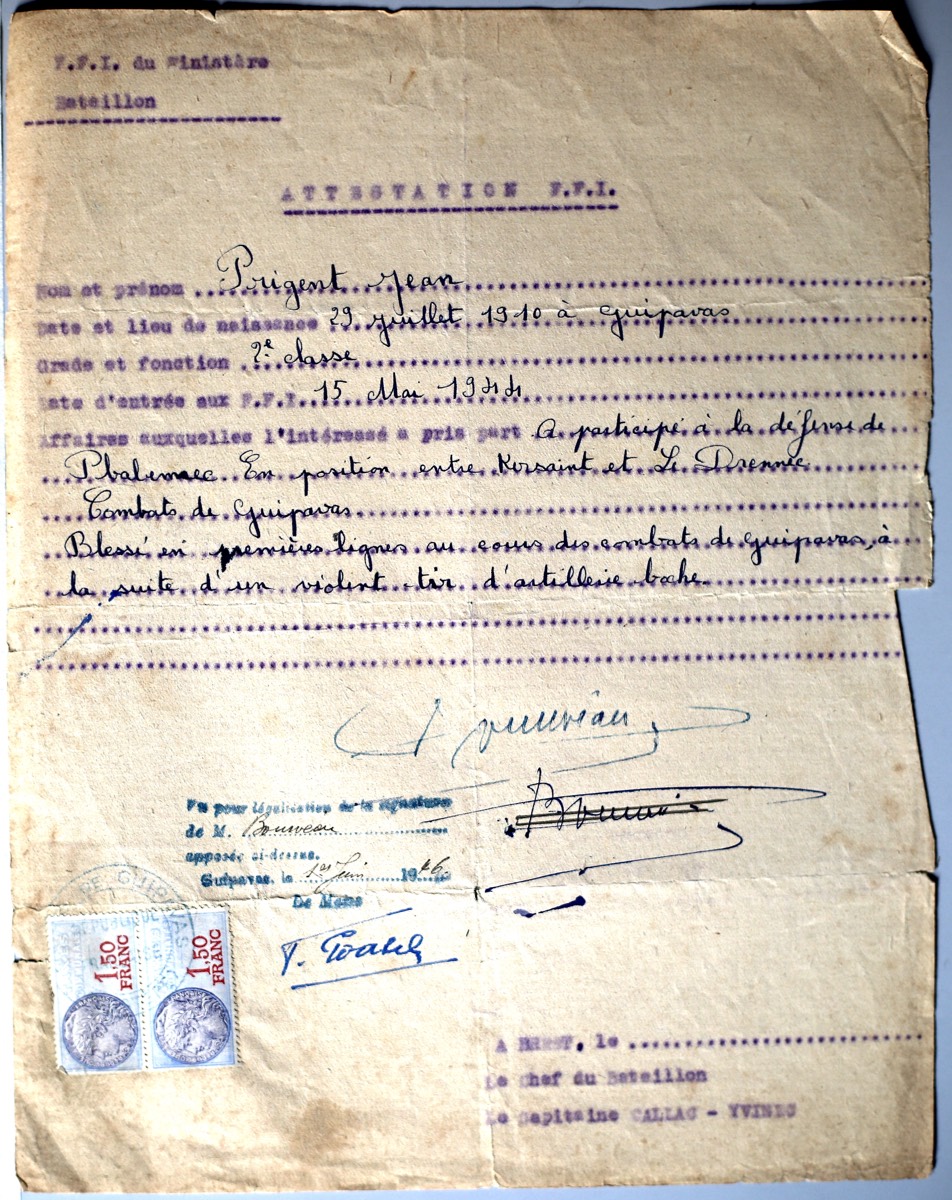 F.F.I. du Ministère
Bataillon
ATTESTATION F.F.I.
Nom et prénom Prigent Jean
Date et lieu de naissance 29 juillet 1910 à Guipavas
Grade et fonction 2e classe
Date d'entrée aux F.F.I. 15 Mai 1944
Affaires auxquelles l'intéressé a pris part A participé à la défense de
En position entre Kersaint et Le Drennec
Combats de Guipavas
Blessé en premières lignes au cours des combats de Guipavas, à
la suite d'un violent tir d'artillerie boche
Vu pour légalisation de la signature
de M. Bouveau
apposée ci-dessus.
Guipavas, le 1er Juin 1946.
GUIPAVAS
1,50 FRANC
1,50 FRANC
A BREST, le
Le Chef du Bataillon
Le Capitaine CALLAC - YVINEC